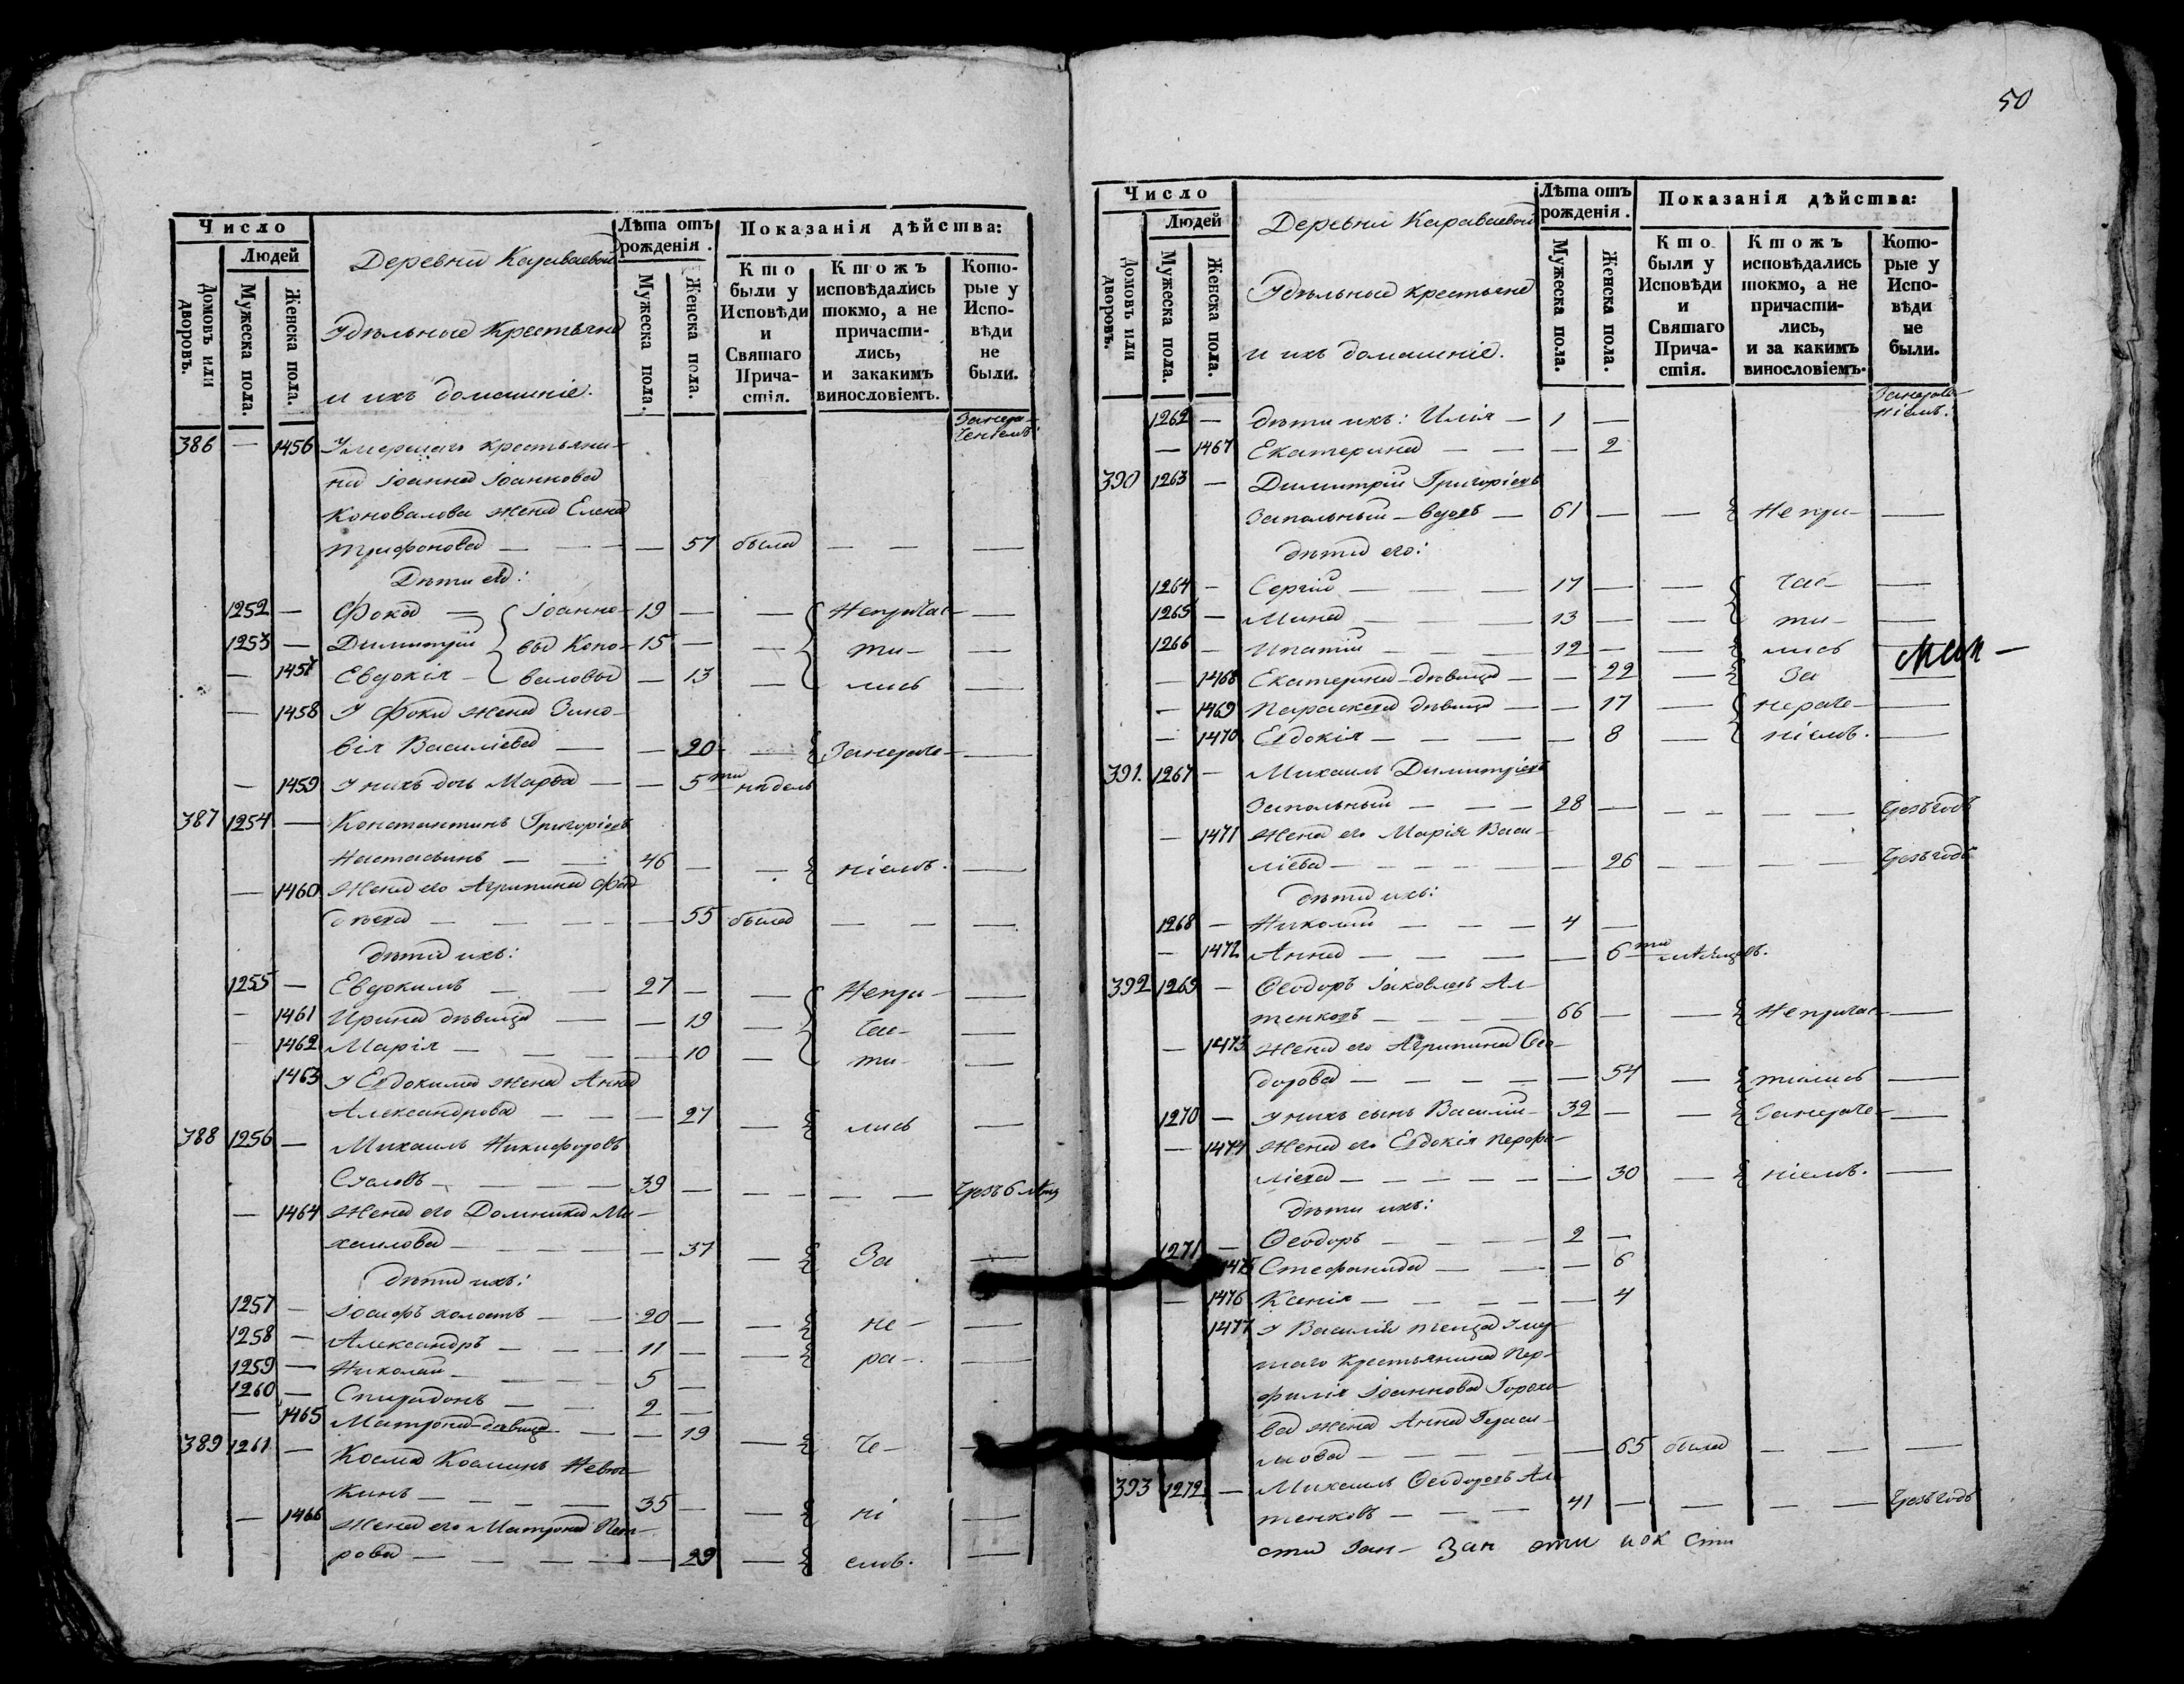 Число
Людей
Домовъ или дворовъ.
Мужеска пола.
Женска пола.
Деревни Караваевой
Удѣльные Крестьяне
и ихъ домашніе.
Лѣта отъ рожденія.
Мужеска пола.
Женска пола.
Показанія дѣйства:
Кто были у Исповѣди и Святаго Причастія.
Ктожъ исповѣдались токмо, а не причастились, и закакимъ винословіемъ.
Которые у Исповѣди не были.
386 — 1456 Умершаго крестьяни-
на Іоанна Іоаннова
Коновалова жена Елена
Трифонова — — — 57 была — — —
Дѣти ея:
1252 — Фока — Іоанно- 19 — — Непричас- —
1253 — Димитрій вы Коно- 15 — — ти- —
— 1457 Евдокія - валовы — 13 — лись —
— 1458 У Фоки жена Зино-
вія Васильева — — 20 — Занераче- —
— 1459 У нихъ дочь Марѳа — — 5ти недель
387 1254 — Константинъ Григорьевъ
— — 46 — — ніемъ. —
— 1460 Жена его Агрипина Фад-
дѣева — — — 55 была — — —
дѣти ихъ:
1255 — Евдокимъ — — 27 — — Непри- —
— 1461 Ирина дѣвица — — 19 — час- —
1462 Марія — — — 10 — ти- —
1463 У Евдокима жена Анна
Александрова — — — 27 — лись —
388 1256 — Михаилъ Никифоровъ
— — 39 — — — —
— 1464 Жена его Домника Ми-
хаилова — — — 37 — За —
дѣти ихъ:
1257 — Іосифъ холостъ — — 20 — — не- —
1258 — Александръ — — — 11 — — ра- —
1259 — Николай — — — 5 —
1260 — Спиридонъ — — 2 —
— 1465 Матрона дѣвица — — 19 — че- —
389 1261 — Косма Косминъ
— — — 35 — — ні —
— 1466 Жена его Матрона Пет-
рова — — — — 29 — емъ. —
50
Число
Людей
Домовъ или дворовъ.
Мужеска пола.
Женска пола.
Деревни Караваевой
Удѣльные крестьяне
и ихъ домашніе.
Лѣта отъ рожденія.
Мужеска пола.
Женска пола.
Показанія дѣйства:
Кто были у Исповѣди и Святаго Причастія.
Ктожъ исповѣдались токмо, а не причастились, и за какимъ винословіемъ.
Которые у Исповѣди не были.
1262 — дѣти ихъ: Илія — 1 —
— 1467 Екатерина — — — 2
390 1263 — Димитрій Григорьевъ
Запольный — вдовъ — 61 — — Непри- —
дѣти его:
1264 — Сергій — — — 17 — — час- —
1265 — Мина — — — 13 — — ти- —
1266 — Ипатій — — — 12 — — лись
— 1468 Екатерина дѣвица — — 22 — За —
— 1469 Параскева дѣвица — — 17 — нераче- —
— 1470 Евдокія — — — — 8 — ніемъ. —
391. 1267 — Михаилъ Димитріевъ
Запольный — — — 28 — — — —
— 1471 Жена его Марія Васи-
ліева — — — — 26 — — —
дѣти ихъ:
1268 — Николай — — — 4 —
— 1472 Анна — — — — 6ти мѣсяцовъ.
392 1269 — Ѳеодоръ Іаковлевъ Ал-
тенковъ — — — 66 — — Непричас- —
— 1473 Жена его Агрипина Ѳео-
дорова — — — — 54 — тились —
1270 — У нихъ сынъ Василій — 32 — — Занераче- —
— 1474 Жена его Евдокія Перфи-
ліева — — — — 30 — ніемъ. —
дѣти ихъ:
1271 — Ѳеодоръ — — — 2 —
1475 Стефанида — — — 6
— 1476 Ксенія — — — — 4
1477 У Василія теща умер-
шаго крестьянина Пер-
филія Іоаннова Горохо-
ва жена Анна Гераси-
мова — — — 65 была — — —
393 1272 — Михаилъ Ѳеодоровъ Ал-
тенковъ — — — 41 — — — —